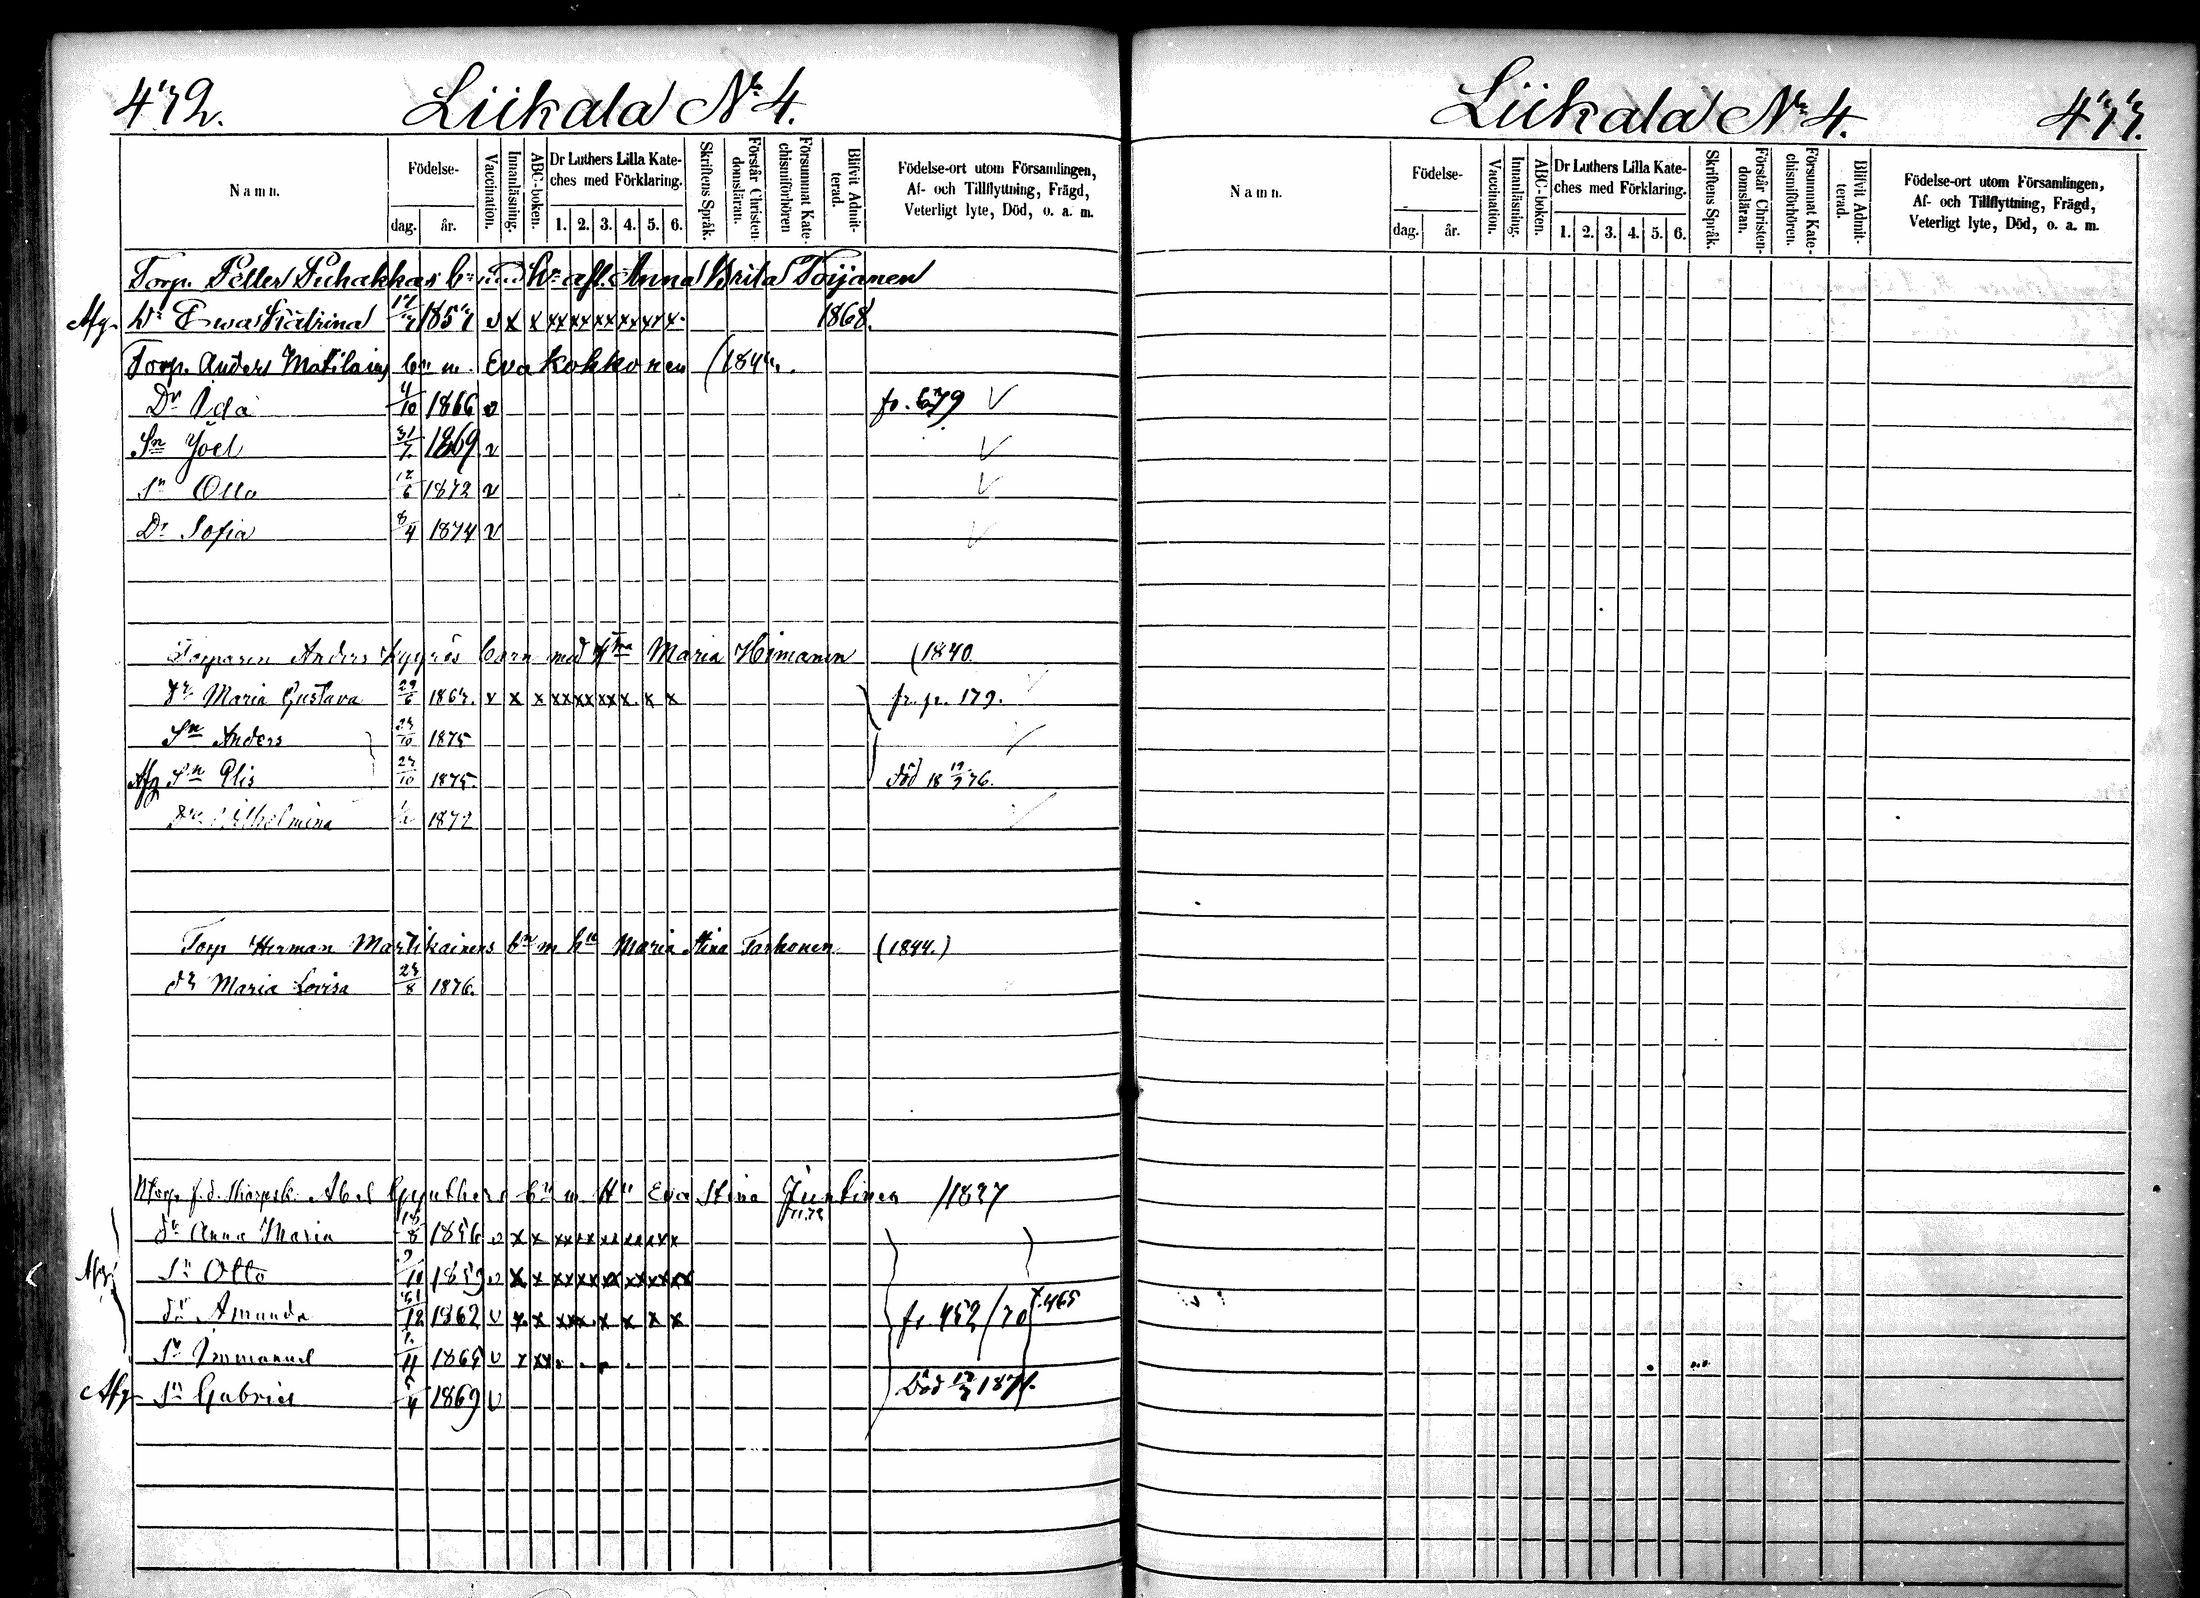 472. Liikala No 4.
Namn.
Födelse-
dag. år.
Vaccination.
Innanläsning.
ABC-boken.
Dr Luthers Lilla Kate-
ches med Förklaring.
1. 2. 3. 4. 5. 6.
Skriftens Språk.
Förstår Christen-
domsläran.
Försummat Kate-
chismiförhören
Blifvit Admit-
terad.
Födelse-ort utom Församlingen,
Af- och Tillflyttning, Frägd,
Veterligt lyte, Död, o. a. m.
Torp. Petter Puhakkas bn med hu afl. Anna Brita Toijanen
Afg. Dr Ewa Katrina 1857 v x x xx xx xx xx xx x. 1868.
Torp. Anders Matilains bn m. Eva Kokkonen (1844.
Dr Ida 4/10 1866 v fr. 679 V
Sn Joel 31/7 1869 v V
Sn Otto 12/6 1872 v V
Dr Sofia 8/4 1874 v V
Torparen Anders Kyyrös barn med Hna Maria Himanen (1840
Dr Maria Gustava 29/6 1867. v x x xx xx xx x. x x fr. p. 179.
Sn Anders 27/10 1875
Afg Sn Elis 27/10 1875. död 18 19/7 76.
Dr Wilhelmina 1872
Torp Herman Martikainens bn m hu Maria Stina Tarkonen (1844.)
dr Maria Lovisa 23/8 1876.
Abel bn m Hu Eva Stina Juntinen /1827
dr Anna Maria 18/8 1856 v x x xx xx xx xx xx x
Afg. Sn Otto 9/11 1859 v x x xx xx xx xx xx xx
dr Amanda 31/12 1862 v x x xx x x x x x fr. 452/70 f. 465
Sn Immanuel 1865 v x xx
Afg Sn Gabriel 5/4 1869 v Död 1871.
Liikala No 4. 473.
Namn.
Födelse-
dag. år.
Vaccination.
Innanläsning.
ABC-boken.
Dr Luthers Lilla Kate-
ches med Förklaring.
1. 2. 3. 4. 5. 6.
Skriftens Språk.
Förstår Christen-
domsläran.
Försummat Kate-
chismiförhören.
Blifvit Admit-
terad.
Födelse-ort utom Församlingen,
Af- och Tillflyttning, Frägd,
Veterligt lyte, Död, o. a. m.